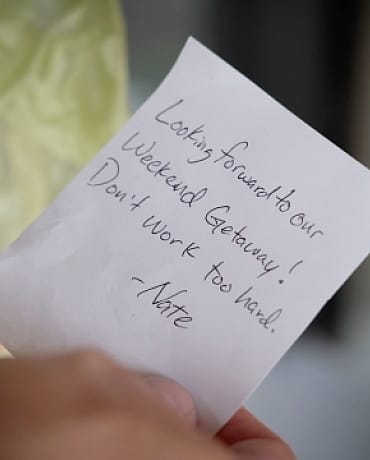 Looking forward to our
Weekend Getaway!
Don't work too hard.
-Nate